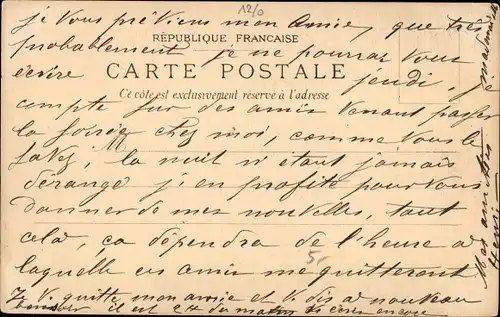 je vous préviens mon amie, que très
12/0
probablement je ne pourrai vous
RÉPUBLIQUE FRANÇAISE
écrire jeudi, je
CARTE POSTALE
Ce côté est exclusivement réservé à l'adresse
compte sur des amis venant passer
la soirée chez moi, comme vous le
savez, la nuit n'étant jamais
dérangé j'en profite pour vous
donner de mes nouvelles, tout
cela, ça dépendra de l'heure à
laquelle ces amis me quitteront
5-
Je V. quitte mon amie et V. dis à nouveau
il est 2 H du matin
encore
Mes amitiés